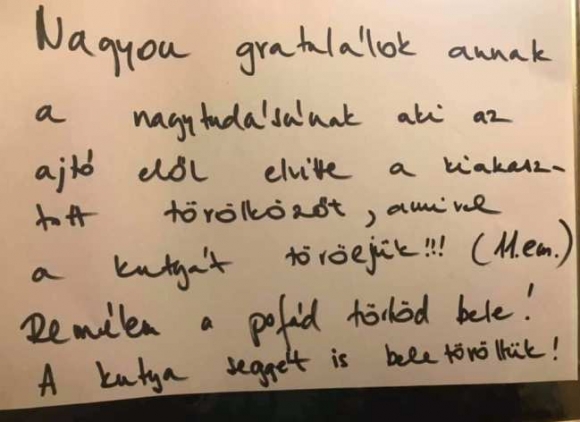 Nagyon gratulálok annak
a nagytudásúnak aki az
ajtó elől elvitte a kiakasz-
tott törölközőt, amivel
a kutyát töröljük!!! (11.em.)
Remélem a pofád törlöd bele!
A kutya seggét is bele töröltük!